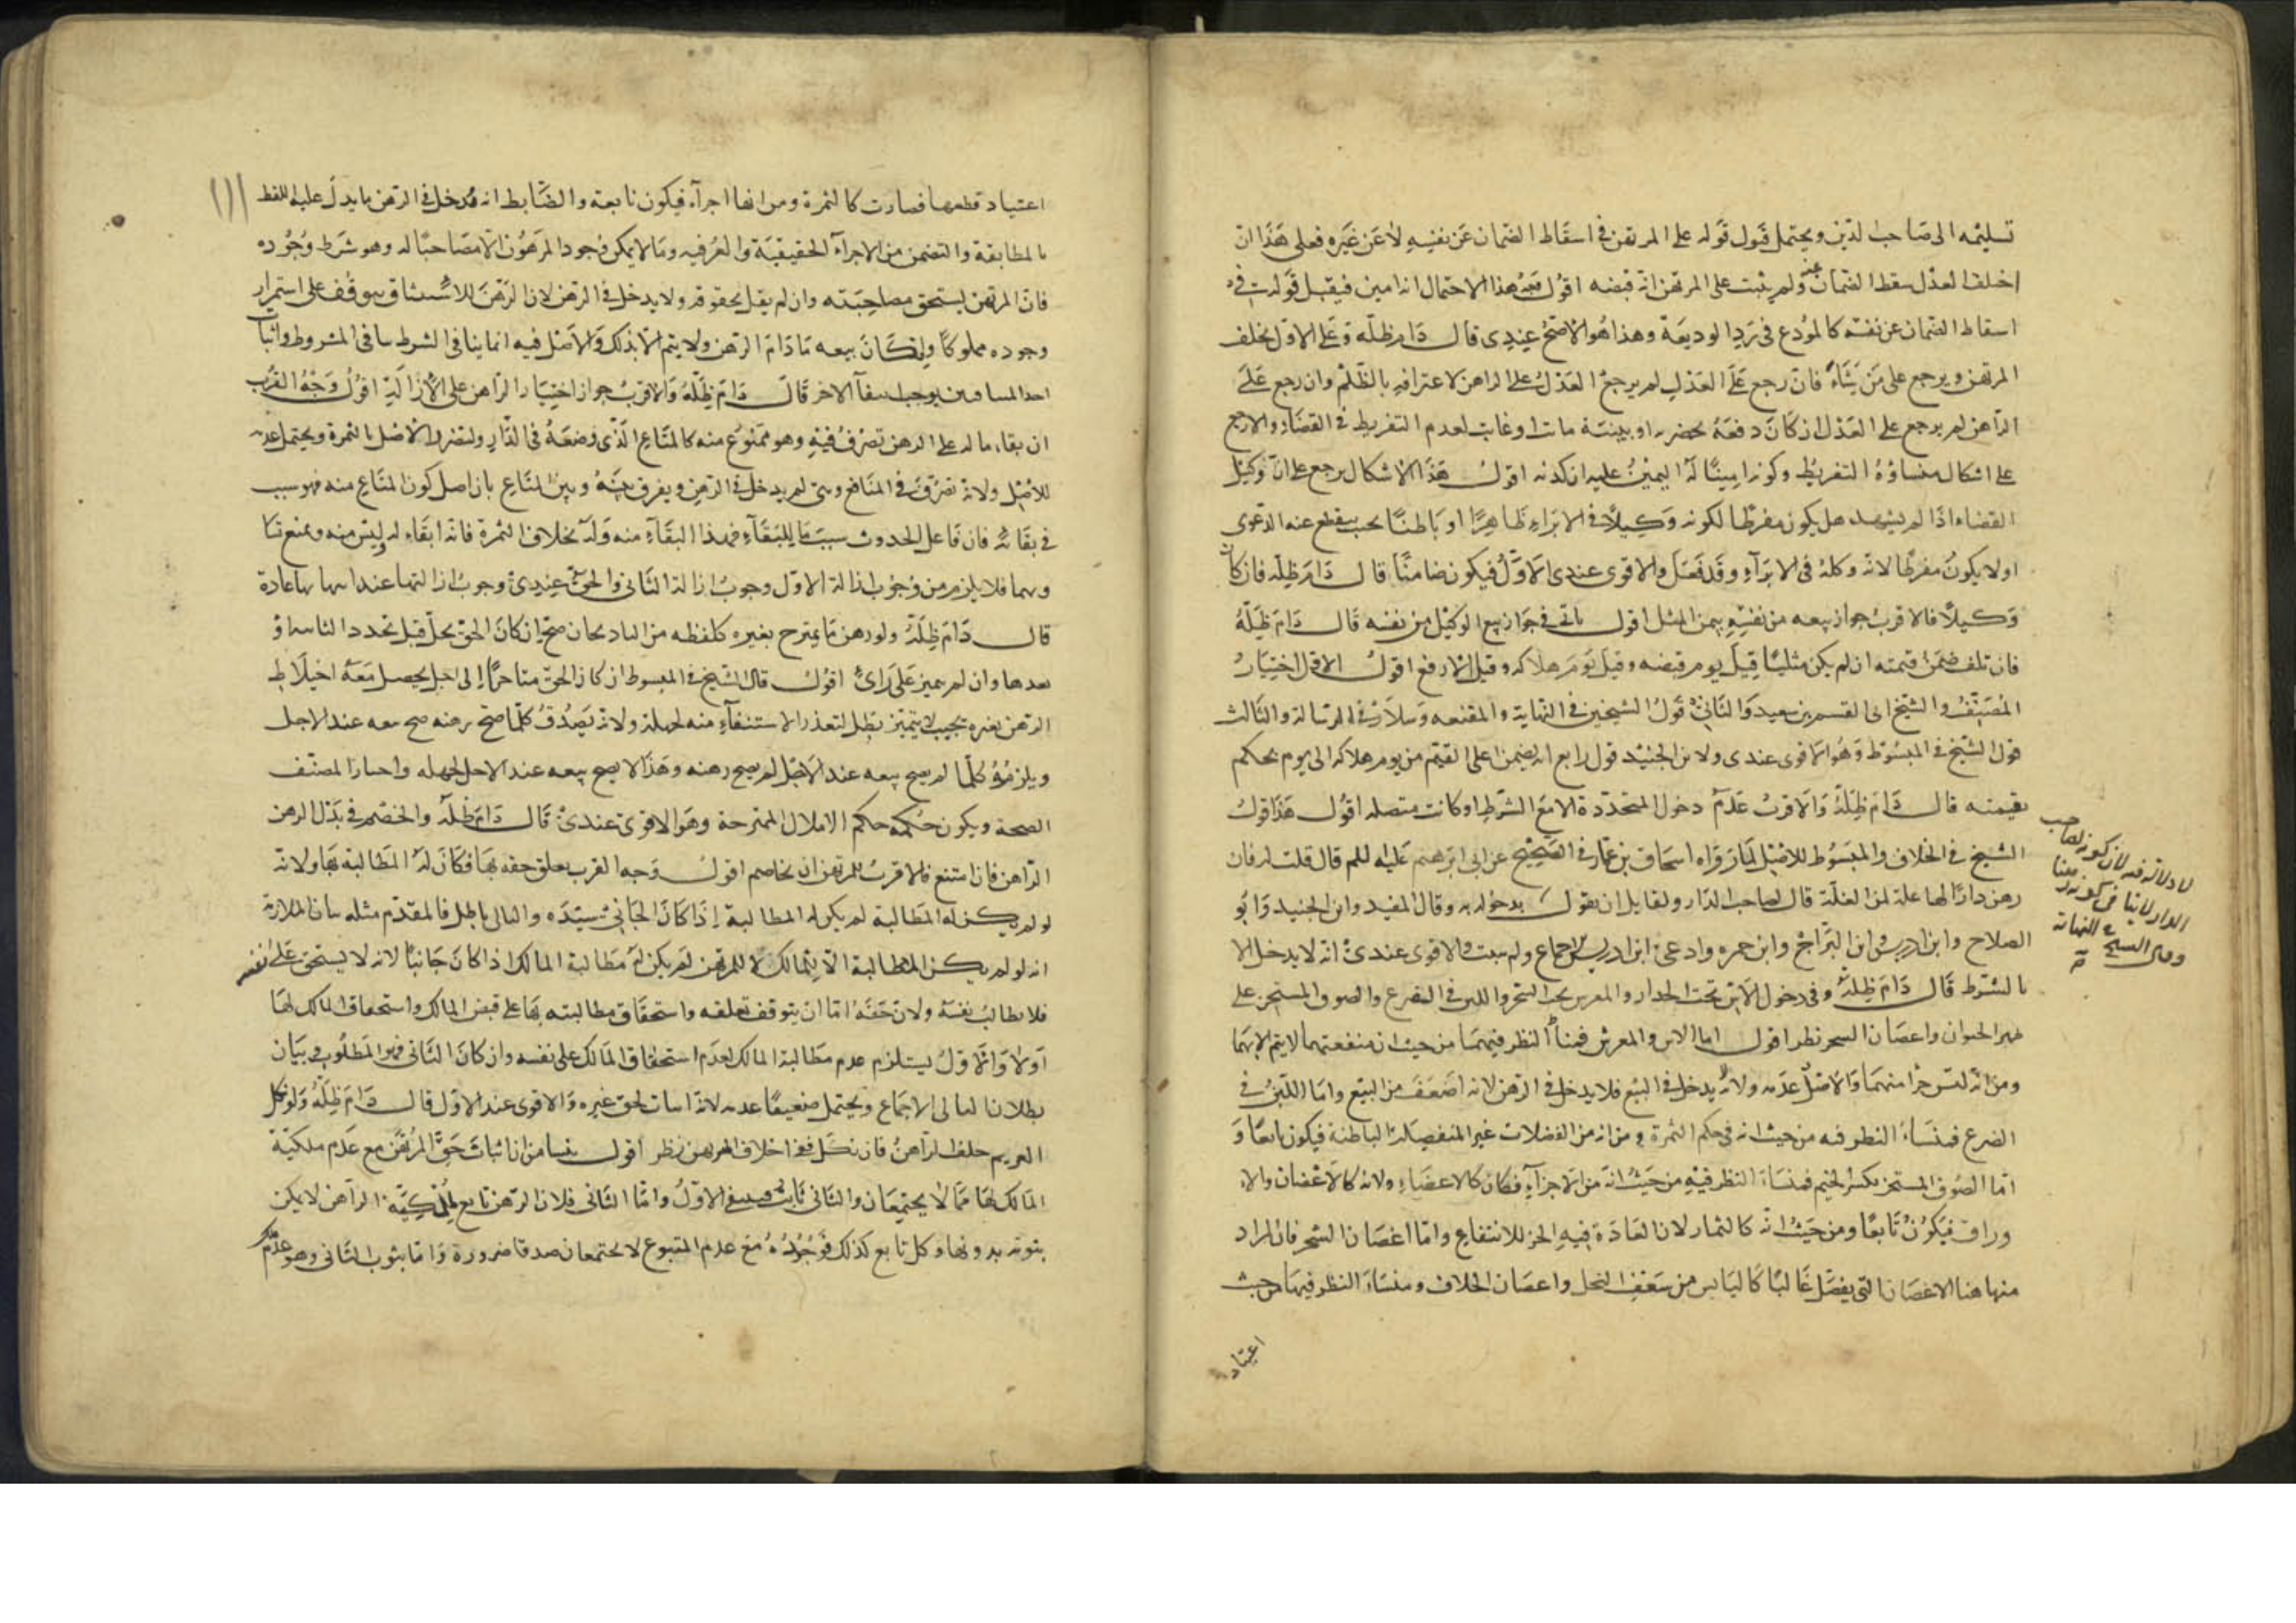 تسليمه الى صاحب الدين ويحتمل قبول قوله على المرتهن في اسقاط الضمان عن نفسه لا عن غيره فعلى هذا ان
اختلفا العدل سقط الضمان عنه ولم يثبت على المرتهن انه قبضه اقول هذا الاحتمال انه امين فيقبل قوله في
اسقاط الضمان عن نفسه كالمودع في رد الوديعة وهذا هو الاصح عندي قال دام ظله وعلى الاول يحلف
المرتهن ويرجع على من يشاء فان رجع على العدل لم يرجع العدل على الراهن لاعترافه بالظلم وان رجع على
الراهن لم يرجع على العدل ان كان دفعه بحضرته او ببينة ماتت او غابت لعدم التفريط في القضاء والا رجع
على اشكال منشاؤه التفريط وكونه امينا له اليمين عليه ان كذبه اقول هذا الاشكال يرجع على ان وكيل
القضاء اذا لم يشهد هل يكون مفرطا لكونه وكيلا في الابراء ظاهرا او باطنا بحيث ينقطع عنه الدعوى
اولا يكون مفرطا لانه وكله في الابراء وقد فعل والاقوى عندي الاول فيكون ضامنا قال دام ظله فان كان
وكيلا فالاقرب جواز بيعه من نفسه بثمن المثل اقول ياتي في جواز بيع الوكيل من نفسه قال دام ظله
فان تلف ضمن قيمته ان لم يكن مثليا قيل يوم قبضه وقيل يوم هلاكه وقيل الارفع اقول الاول اختيار
المصنف والشيخ ابي القسم بن سعيد والثاني قول الشيخين في النهاية والمقنعه وسلار في الرسالة والثالث
قول الشيخ في المبسوط وهو الاقوى عندي ولابن الجنيد قول رابع انه يضمن اعلى القيم من يوم هلاكه الى يوم يحكم
بقيمته قال دام ظله والاقرب عدم دخول المتجددة الا مع الشرط او كانت متصله اقول هذا قول
الشيخ في الخلاف والمبسوط للاصل لما رواه اسحاق بن عمار في الصحيح عن ابي ابرهيم عليه السلم قال قلت له فان
رهن دارا لها غلة لمن الغلة قال لصاحب الدار ولقايل ان يقول بدخوله وقال المفيد وابن الجنيد وابو
الصلاح وابن ادريس وابن البراج وابن حمزه وادعى ابن ادريس الاجماع ولم يثبت والاقوى عندي انه لا يدخل الا
بالشرط قال دام ظله وفي دخول الاس تحت الجدار والمغرس تحت الشجر واللبن في الضرع والصوف المستجز على
ظهر الحيوان واغصان الشجر نظر اقول اما الاس والمغرس فمنشأ النظر فيهما من حيث ان منفعتهما لا يتم الا بهما
ومن انه ليس جزءا منهما والاصل عدمه ولانه لا يدخل في البيع فلا يدخل في الرهن لانه اضعف من البيع واما اللبن في
الضرع فمنشاء النظر فيه من حيث انه في حكم الثمرة ومن انه من الفضلات غير المنفصلة الباطنة فيكون تابعا و
اما الصوف المستجز بكسر الجيم فمنشاء النظر فيه من حيث انه من الاجزاء فكان كالاعضاء ولانه كالاغصان والاو
وراق فيكون تابعا ومن حيث انه كالثمار لان العادة فيه الجز للانتفاع واما اغصان الشجر فان المراد
منها هنا الاغصان التي يفصل غالبا كاليابس من سعف النخل واغصان الخلاف ومنشاء النظر فيهما من حيث
اعتياد
لا دلالة فيه لان كونه لصاحب
الدار لا ينافي كونه رهنا
وقال الشيخ في النهاية
اعتياد قطعها فصارت كالثمرة ومن انها اجزاء فيكون تابعة والضابط انه يدخل في الرهن ما يدل عليه اللفظ
بالمطابقة والتضمن من الاجزاء الحقيقية والعرفيه وما لا يمكن وجود المرهون الا مصاحبا له وهو شرط وجوده
فان المرتهن يستحق مصاحبته وان لم يقل بحقوقه ولا يدخل في الرهن لان الرهن للاستيثاق يتوقف على استمرار
وجوده مملوكا وامكان بيعه ما دام الرهن ولا يتم الا بذلك والاصل فيه انما ينافي الشرط ينافي المشروط واثبات
احد المتنافيين يوجب انتفاء الاخر قال دام ظله والاقرب جواز اختيار الراهن على الازالة اقول وجه القرب
ان بقاء ماله على الرهن تصرف فيه وهو ممنوع منه كالمتاع الذي وضعه في الدار ولتضرر الاصل بالثمرة ويحتمل عدمه
للاصل ولانه تصرف في المنافع وهي لم يدخل في الرهن ويفرق بينه وبين المتاع بان اصل كون المتاع منه فهو سبب
في بقائه فان فاعل الحدوث سبب ما للبقاء فهذا البقاء منه وله بخلاف الثمرة فانه ابقاء له وليس منه ويمنع
فلا يلزم من وجوب ازالة الاول وجوب ازالة الثاني والحق عندي وجوب ازالتها عند انتهائها عادة
قال دام ظله ولو رهن ما يمتزج بغيره كلقطه من الباذنجان صح ان كان الحق يحل قبل تجدد الثانية او
بعدها وان لم يتميز على راي اقول قال الشيخ في المبسوط ان كان الحق متاخرا الى اجل يحصل معه اختلاط
الرهن بغيره بحيث لا يتميز بطل لتعذر الاستيفاء منه لجهله ولانه يصدق كلما صح رهنه صح بيعه عند الاجل
ويلزمه كلما لم يصح بيعه عند الاجل لم يصح رهنه وهذا لا يصح بيعه عند الاجل لجهله واختار المصنف
الصحة ويكون حكمه حكم الاملاك الممتزجة وهو الاقوى عندي قال دام ظله والخصم في بدل الرهن
الراهن فان امتنع فالاقرب للمرتهن ان يخاصم اقول وجه القرب تعلق حقه بها فكان له المطالبة بها ولانه
لو لم يكن له المطالبة لم يكن له المطالبة اذا كان الجاني سيده والتالي باطل فالمقدم مثله بيان الملازمة
انه لو لم يكن المطالبة الا للمالك لا للمرتهن لم يكن له مطالبة المالك اذا كان جانيا لانه لا يستحق على نفسه
فلا يطالب نفسه ولان حقه اما ان يتوقف تعلقه واستحقاق مطالبته بها على قبض المالك واستحقاق المالك لها
اولا والاول يستلزم عدم مطالبة المالك لعدم استحقاق المالك على نفسه وان كان الثاني فهو المطلوب وبيان
بطلان التالي الاجماع ويحتمل ضعيفا عدمه لانه اثبات لحق غيره والاقوى عند الاول قال دام ظله ولو نكل
الغريم حلف الراهن فان نكل ففي احلاف المرتهن نظر اقول ينشا من ان اثبات حق المرتهن مع عدم ملكية
المالك لها مما لا يجتمعان والثاني ثابت فينتفي الاول واما الثاني فلان الرهن تابع لملكية الراهن لا يمكن
ثبوته بدونها وكل تابع كذلك فوجوده مع عدم المتبوع لا يجتمعان صدقا ضرورة واما ثبوت الثاني وهو عدم